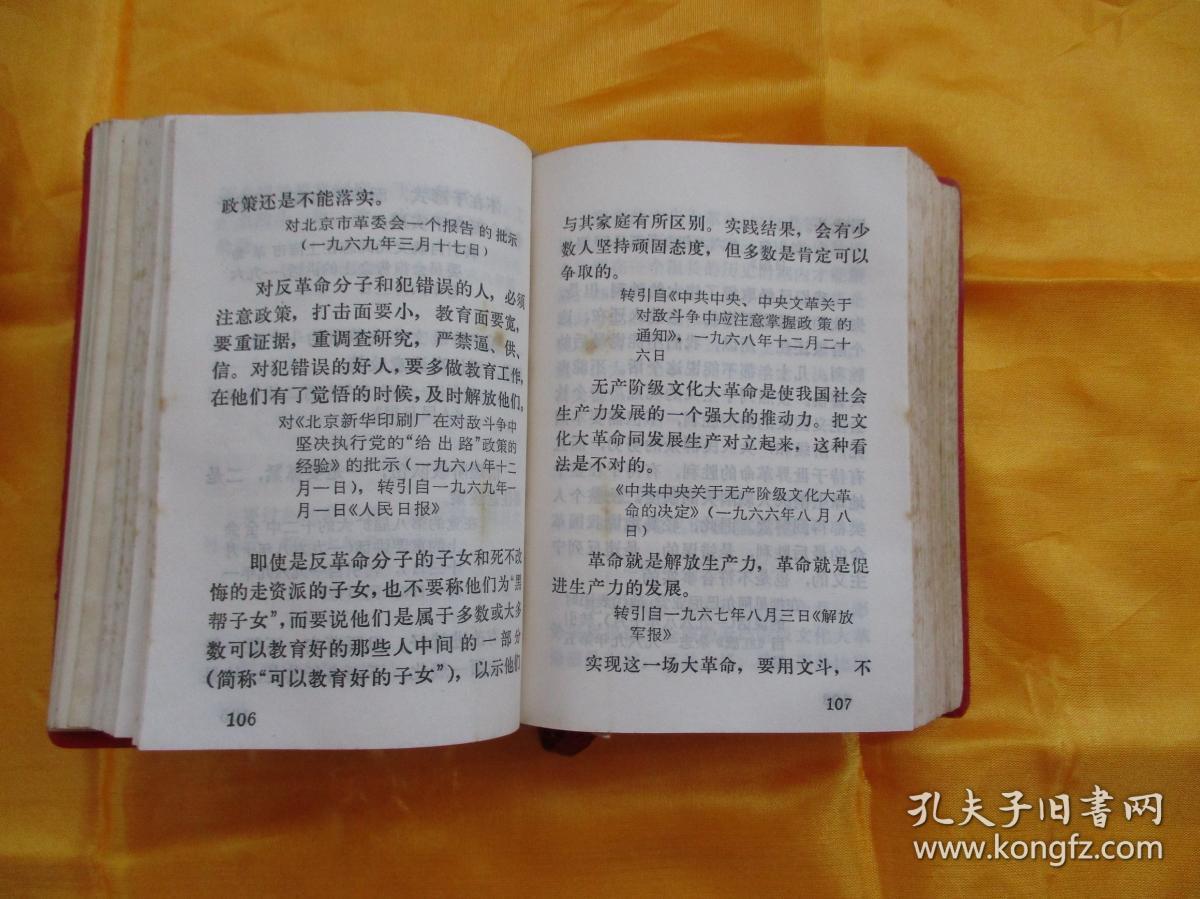 政策还是不能落实。
对北京市革委会一个报告的批示
(一九六九年三月十七日)
对反革命分子和犯错误的人,必须
注意政策,打击面要小,教育面要宽,
要重证据,重调查研究,严禁逼、供、
信。对犯错误的好人,要多做教育工作,
在他们有了觉悟的时候,及时解放他们。
对《北京新华印刷厂在对敌斗争中
坚决执行党的“给出路”政策的
经验》的批示(一九六八年十二
月一日),转引自一九六九年一
月一日《人民日报》
即使是反革命分子的子女和死不改
悔的走资派的子女,也不要称他们为“黑
帮子女”,而要说他们是属于多数或大多
数可以教育好的那些人中间的一部分
(简称“可以教育好的子女”),以示他们
106
与其家庭有所区别。实践结果,会有少
数人坚持顽固态度,但多数是肯定可以
争取的。
转引自《中共中央、中央文革关于
对敌斗争中应注意掌握政策的
通知》,一九六八年十二月二十
六日
无产阶级文化大革命是使我国社会
生产力发展的一个强大的推动力。把文
化大革命同发展生产对立起来,这种看
法是不对的。
《中共中央关于无产阶级文化大革
命的决定》(一九六六年八月八
日)
革命就是解放生产力,革命就是促
进生产力的发展。
转引自一九六七年八月三日《解放
军报》
实现这一场大革命,要用文斗,不
107
孔夫子旧书网
www.kongfz.com